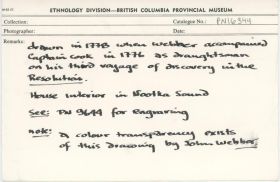 ETHNOLOGY DIVISION—BRITISH COLUMBIA PROVINCIAL MUSEUM
Collection: Catalogue No.: PN16344
Photographer: Date:
Remarks:
drawn in 1778 when Webber accompanied
Captain Cook in 1776 as draughtsman
on his third voyage of discovery in the
Resolution.
House interior in Nootka Sound
See: PN 9644 for Engraving
note: A colour transparency exists
of this drawing by John Webber